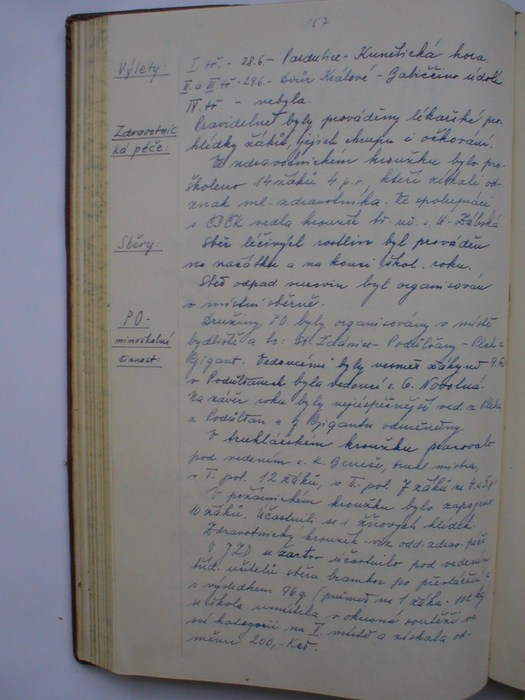 157
Výlety: I. tř. - 28.6 - Pardubice - Kunětická hora,
II. a III. tř. - 29.6. - Dvůr Králové - Babiččino údolí
IV. tř. - nebyla.
Zdravotnic Pravidelně byly prováděny lékařské pro-
ká péče: hlídky žáků, jejich chrupu i očkování.
Ve zdravotnickém kroužku bylo pro-
školeno 14 žáků 4. p. r., kteří získali od-
znak ml. zdravotníka. Ve spolupráci
s ČSČK vedla kroužek tř. uč. s. M. Zábská
Sběry: Sběr léčivých rostlin byl prováděn
na začátku a na konci škol. roku.
Sběr odpad. surovin byl organisován
v místní sběrně.
PO- Družiny PO byly organisovány v místě
mimoškolní bydliště a to: Zdánice - Podůlšany -
činnost: Gigant. Vedoucími byly vesměs žákyně 9. tř.
v Podůlšanech byla vedoucí s. G. Nobolná.
Na závěr roku byly nejúspěšnější ved. z
z Podůlšan a z Gigantu odměněny.
V truhlářském kroužku pracovalo
pod vedením s. K. Beneše, truhl. mistra,
v I. pol. 12 žáků, v II. pol. 7 žáků ze 4. a 5. p.
V požárnickém kroužku bylo zapojeno
10 žáků. Účastnili se i žňových hlídek
Zdravotnický kroužek - viz odd. zdrav. péče
V JZD se žactvo účastnilo pod vedením
tříd. učitelů sběru brambor po
s výsledkem 96 q (průměr na 1 žáka 112 kg
a škola umístila v okresní soutěži ve
své kategorii na I. místě a získala od-
měnu 200,- Kčs.